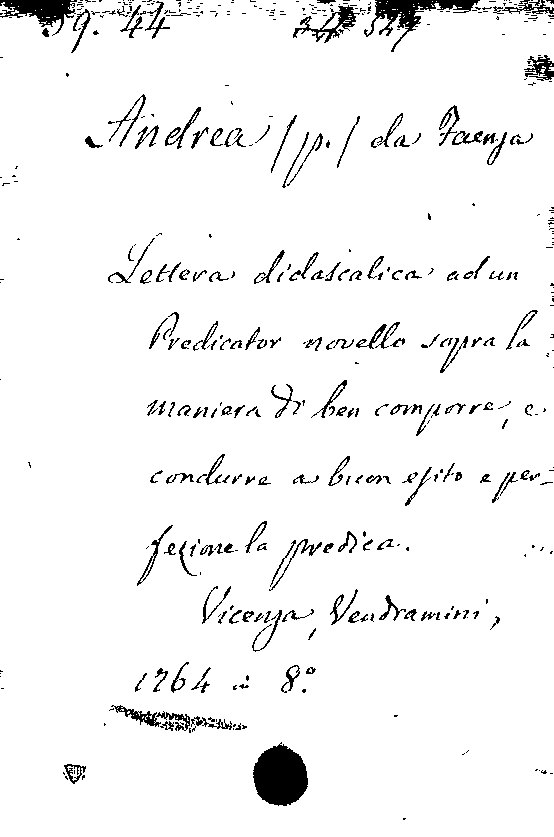 59. 44
Andrea /p./ da Faenza
Lettera didascalica ad un
Predicator novello sopra la
maniera di ben comporre, e
condurre a buon esito e per-
fezione la predica.
Vicenza, Vendramini,
1764 in 8.º